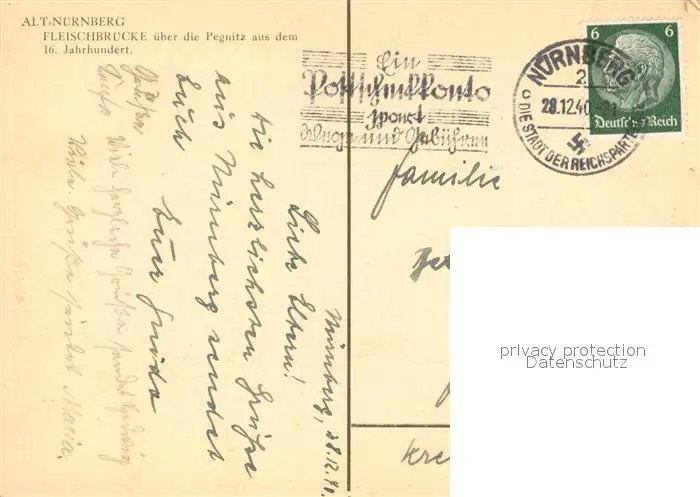 ALT-NÜRNBERG
FLEISCHBRÜCKE über die Pegnitz aus dem
16. Jahrhundert.
Ein
Postscheckkonto
spart
Wege und Gebühren
NÜRNBERG
2
28.12.40
DIE STADT DER REICHSPARTE
6 6
Deutsches Reich
Familie
Kre
privacy protection
Datenschutz
Nürnberg, 28.12.40.
Liebe Eltern!
Die herzlichsten Grüße
aus Nürnberg sendet
Euch
Euer Guido
Viele herzliche Grüße sendet
Viele Grüße sendet Maria.